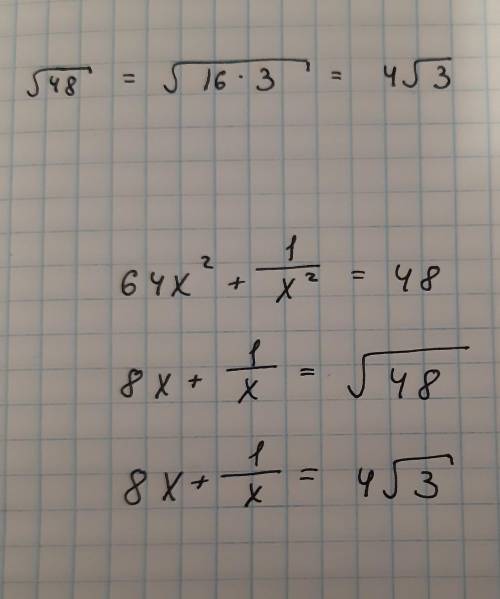 √48 = √16 · 3 = 4√3
64x² + 1/x² = 48
8x + 1/x = √48
8x + 1/x = 4√3